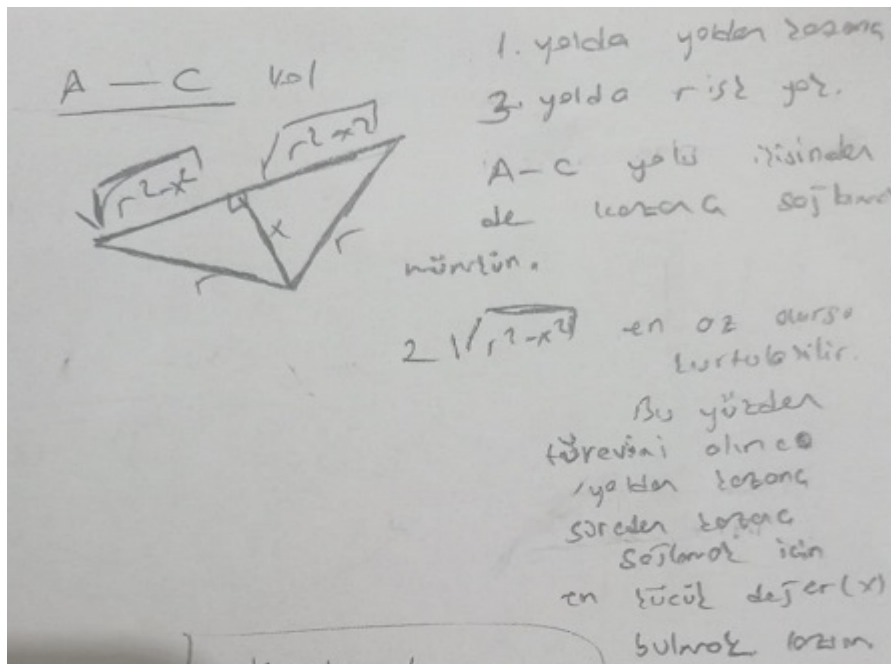 A — C yol
√r²-x²
√r²-x²
x
r
r
1. yolda yoldan kazanç
3. yolda risk yok.
A-C yolu ikisinden
de kazanç sağlamak
mümkün.
2√r²-x² en az olursa
kurtulabilir.
Bu yüzden
türevini alınca
yoldan kazanç
süreden kazanç
sağlamak için
en küçük değer (x)
bulmak lazım.